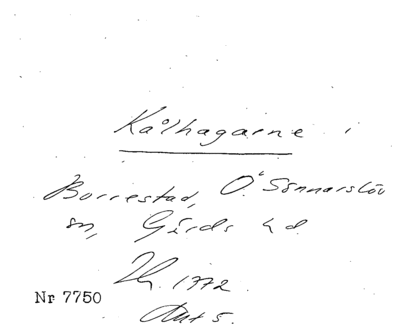 Kålhagarne i
Borrestad, Ö. Sönnarslöv
sn, Gärds hd.
1772.
Nr 7750
Akt 5.